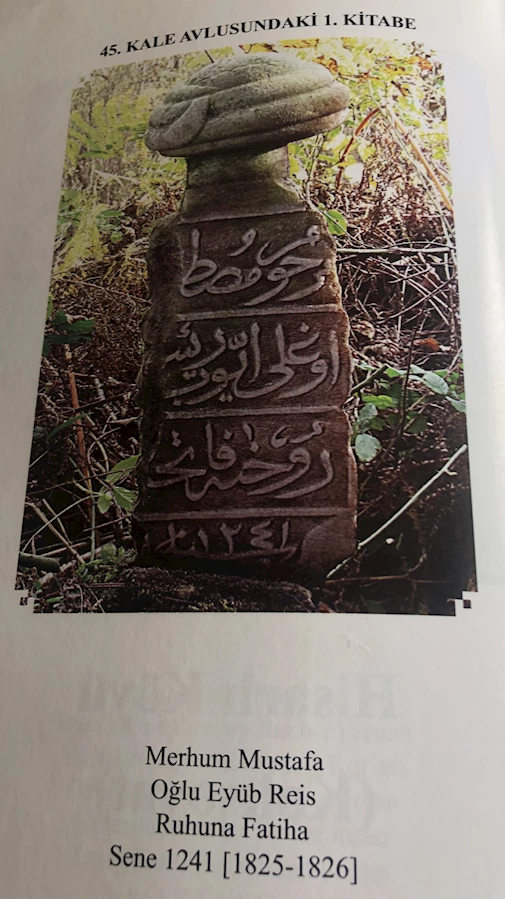 45. KALE AVLUSUNDAKİ 1. KİTABE
مرحوم مصطفى
اوغلى ايوب رئيس
روحنه فاتحه
سنه ١٢٤١
Merhum Mustafa
Oğlu Eyüb Reis
Ruhuna Fatiha
Sene 1241 [1825-1826]